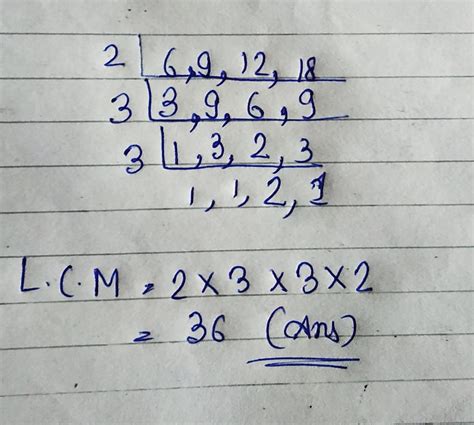 2 | 6, 9, 12, 18
3 | 3, 9, 6, 9
3 | 1, 3, 2, 3
1, 1, 2, 1
L.C.M = 2 × 3 × 3 × 2
= 36 (Ans)